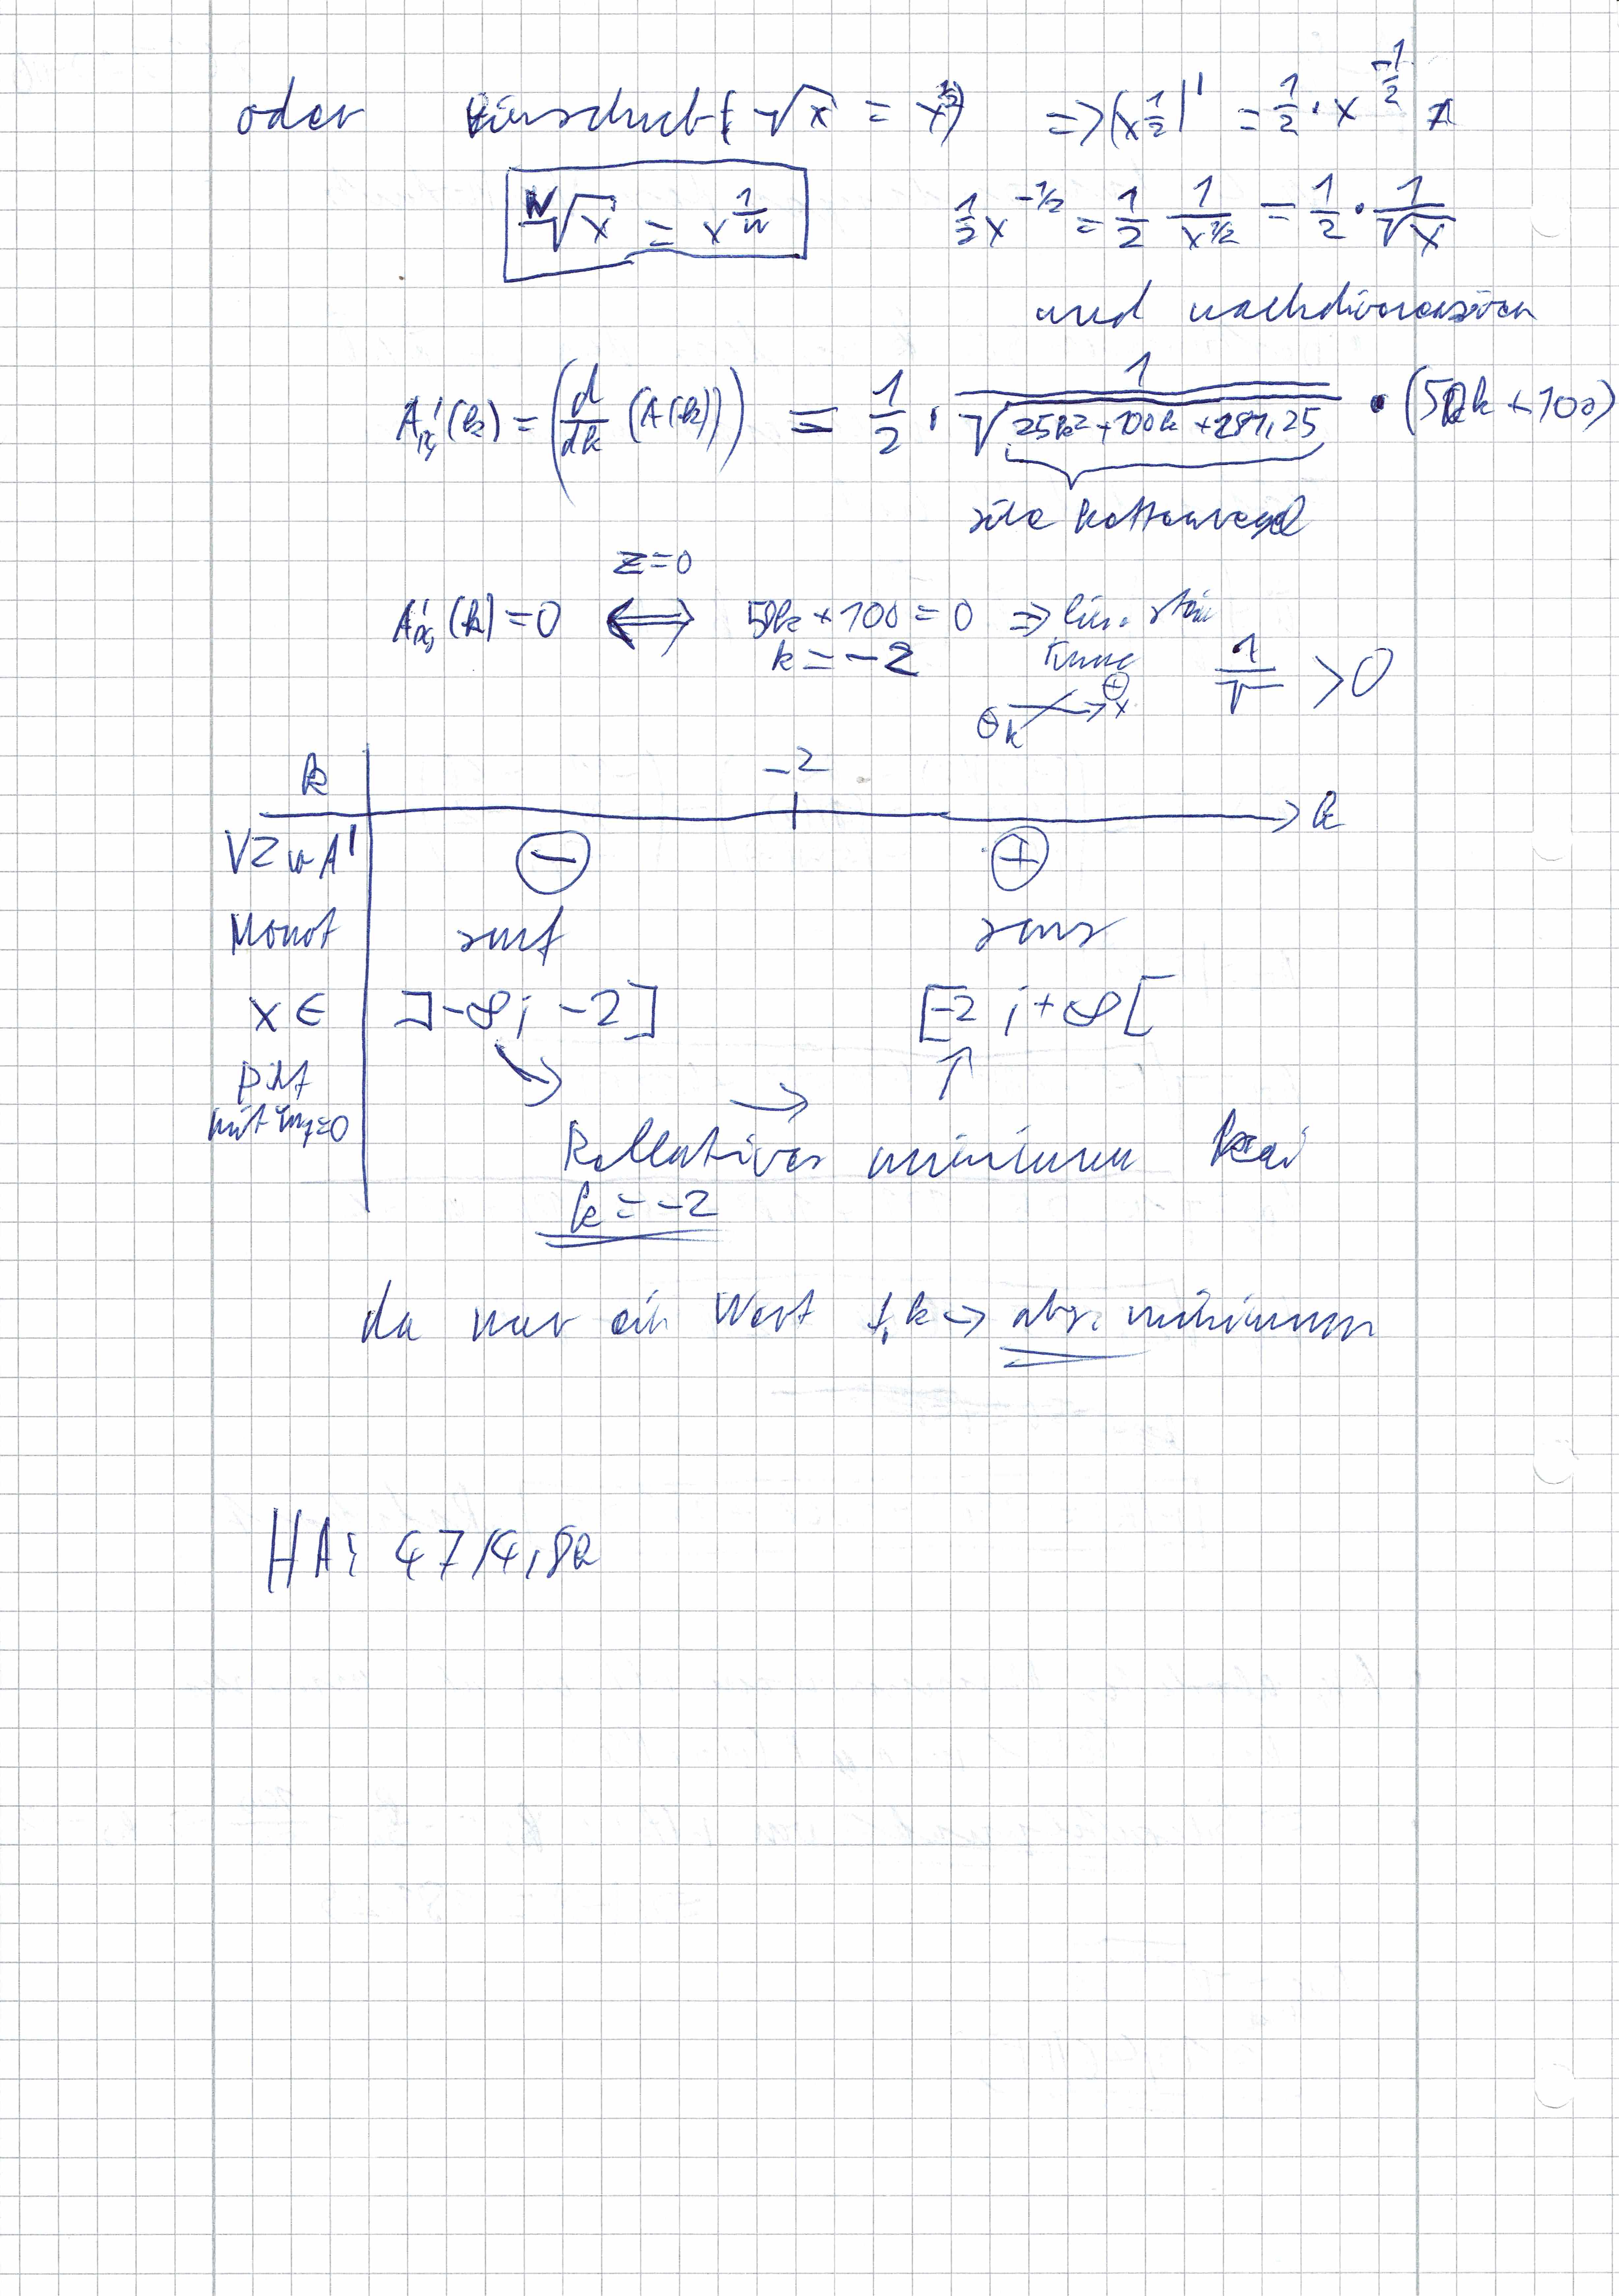 oder Einschub (√x = x^½) => (x^½)' = ½ · x^-½
ⁿ√x = x^(1/n)
½ x^-1/2 = ½ 1/x^1/2 = ½ · 1/√x
und nachdifferenzieren
A'(k) = (d/dk (A(k))) = ½ · 1/√(25k² + 100k + 281,25) · (50k + 100)
siehe Kettenregel
Z=0
A'(k) = 0 <=> 50k + 100 = 0 => lin. stei
k = -2
1/√ > 0
⊖ k ⊕ x
k -2 k
VZ v A' ⊖ ⊕
Monot smf sms
x ∈ ]-∞; -2] [-2 ; +∞[
mit
Rellatives minimum bei
k = -2
da nur ein Wert f. k → abs. minimum
HA: 47/4,8a